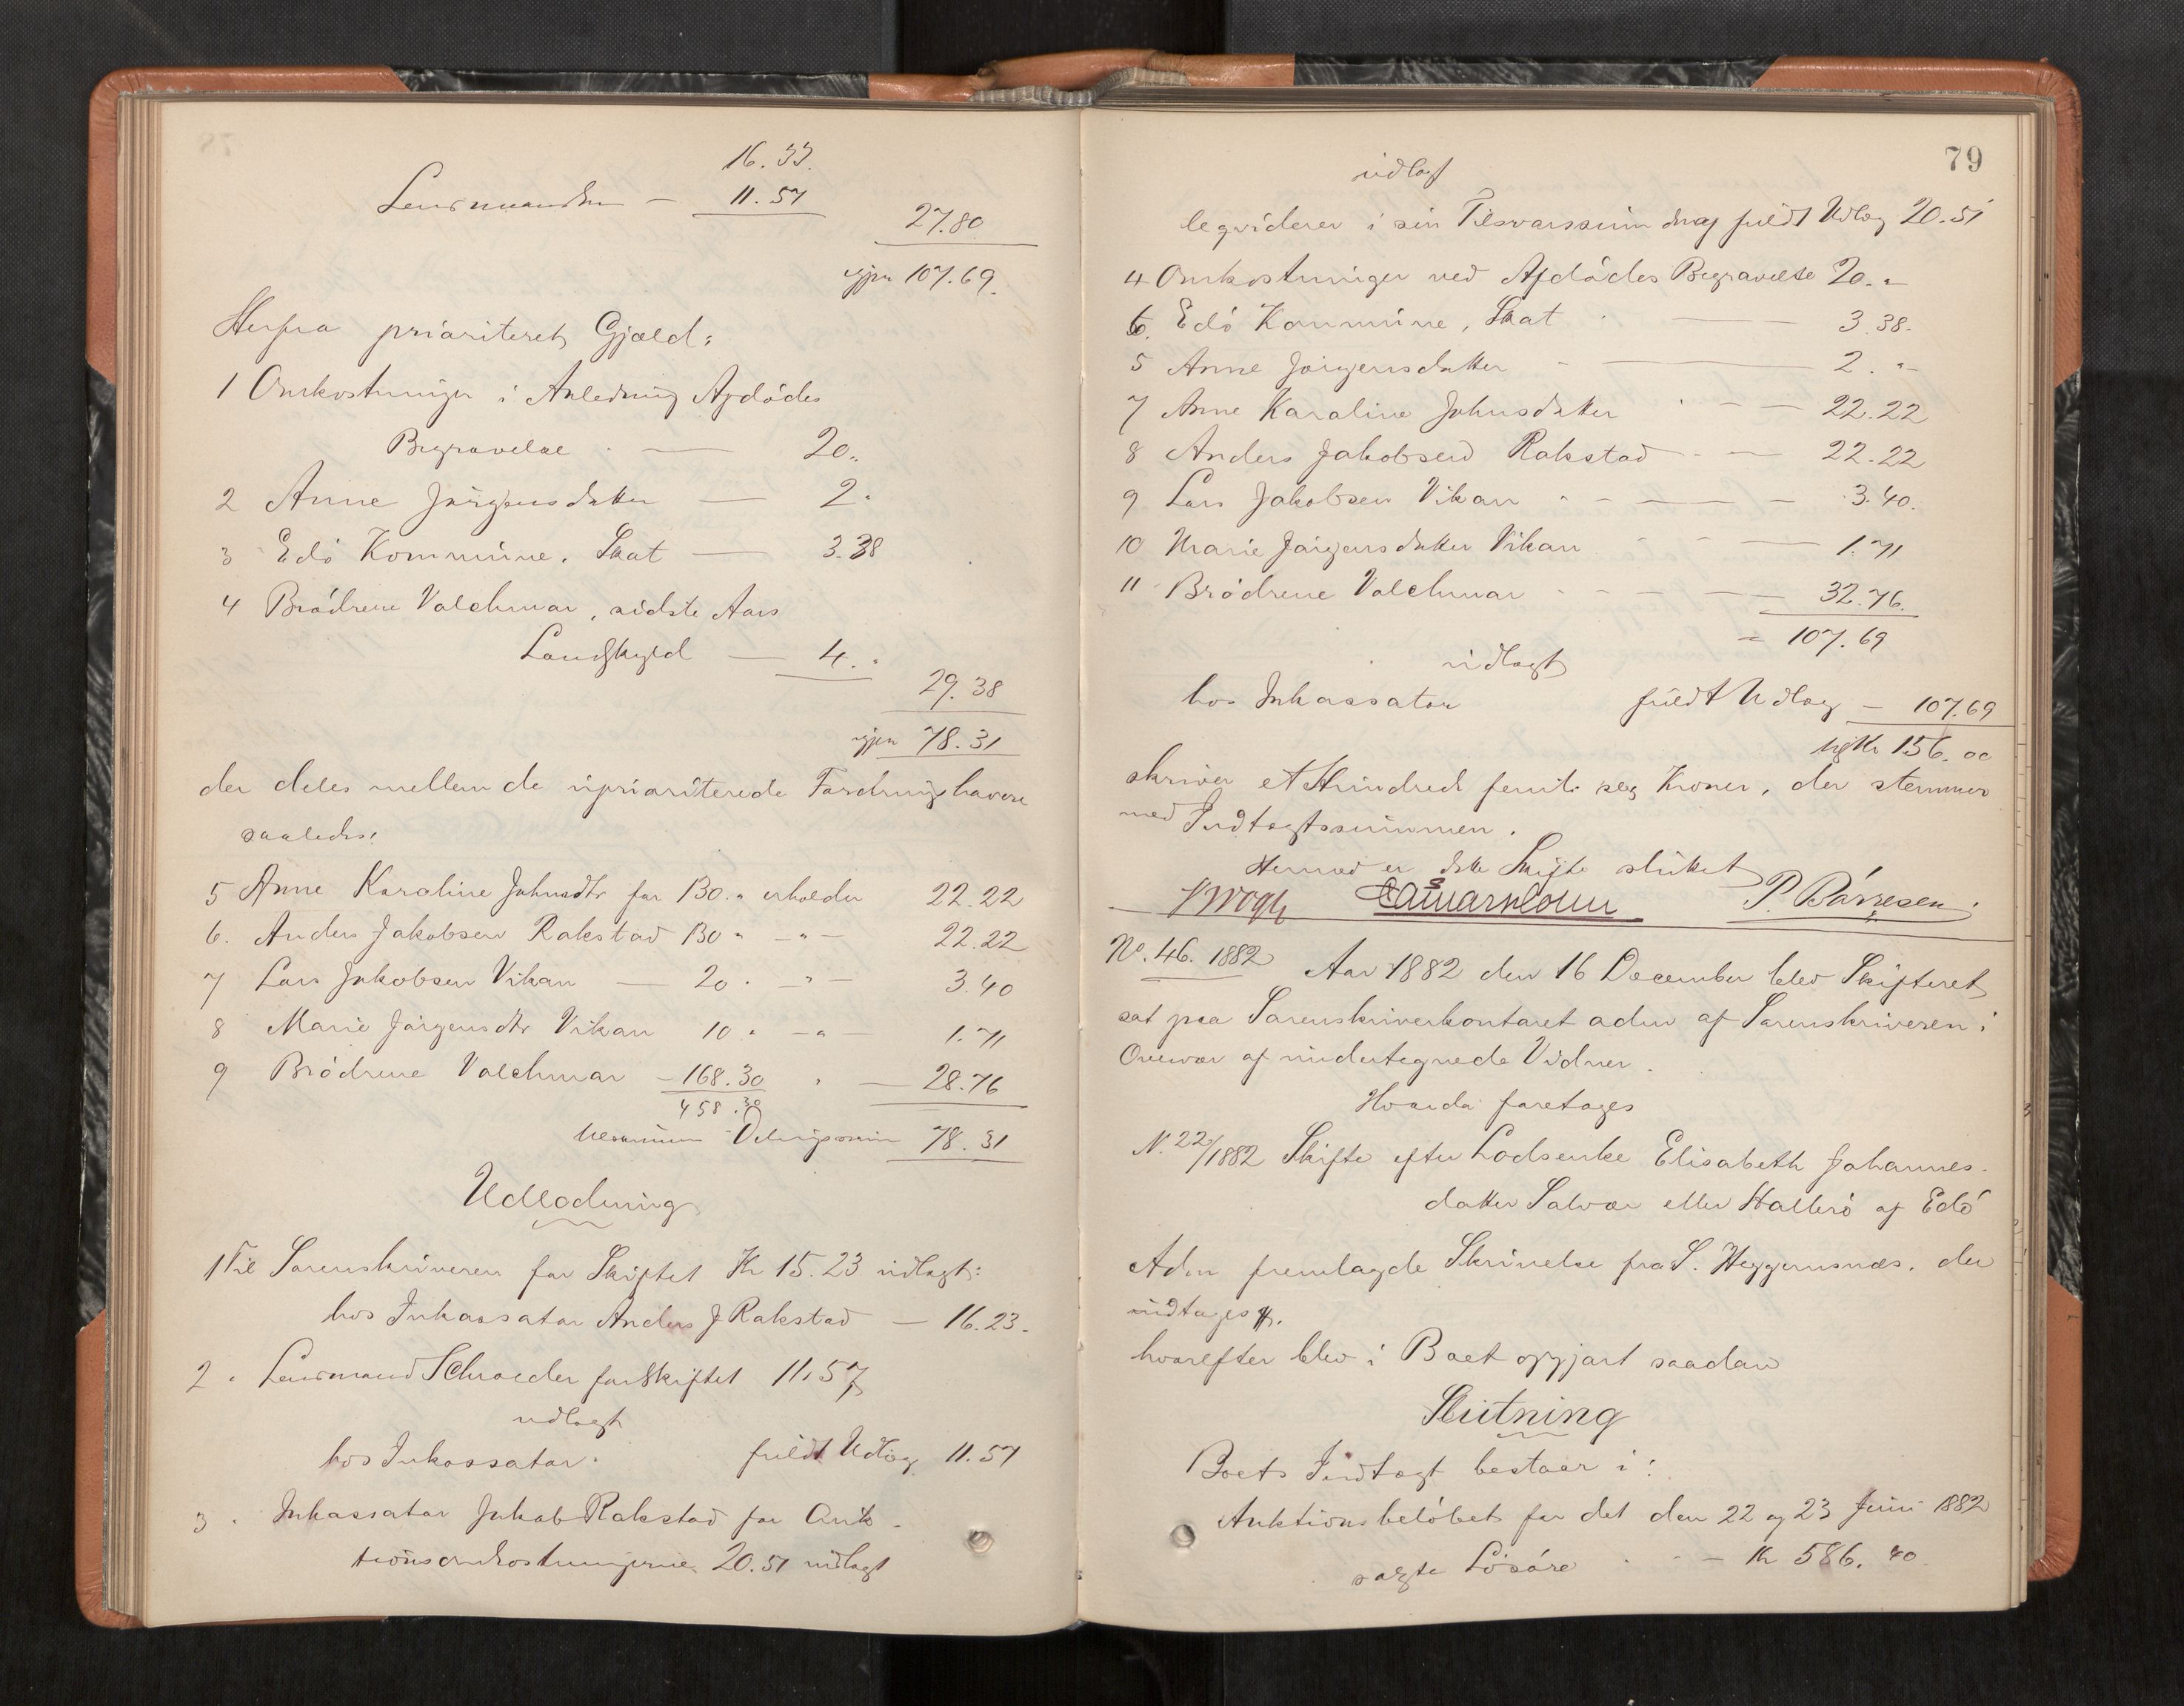 16.33.
Lensmanden — 11.57
27.80
igjen 107.69.
Herfra prioriteret Gjæld:
1 Omkostninger i Anledning Afdödes
Begravelse — 20.
2 Anne Jörgensdatter — 2.
3 Edö Kommune. Skat — 3.38
4 Brödrene Volckmar, sidste Aars
Landskyld — 4.
29.38
igjen 78.31
der deles mellem de uprioriterede Fordringshavere
saaledes:
5 Anne Karoline Johnsdtr for 130. " erholder 22.22
6. Anders Jakobsen Rakstad 130 " — " — 22.22
7 Lars Jakobsen Vikan — 20. — " — 3.40
8 Marie Jörgensdtr Vikan 10 " — " — 1.71
9 Brödrene Volckmar — 168.30 " — 28.76
458.30
Delingssum 78.31
Udlodning
1 Til Sorenskriveren for Skiftet Kr 15.23 udlagt:
hos Inkassator Anders J Rakstad — 16.23.
2. Lensmand Schroeder for Skiftet 11.57
udlagt
hos Inkassator. fuldt Udlæg 11.57
3. Inkassator Jakob Rakstad for Auk-
tionsomkostningerne 20.51 udlagt
79
udlagt
leqviderer i sin Tilsvarssum fuldt Udlæg 20.51
4 Omkostninger ved Afdödes Begravelse 20. "
6. Edö Kommune, Skat — 3.38.
5 Anne Jörgensdatter — 2. "
7 Anne Karoline Johnsdatter — 22.22
8 Anders Jakobsen Rakstad — 22.22
9 Lars Jakobsen Vikan — 3.40.
10 Marie Jörgensdatter Vikan — 1.71
11 Brödrene Volckmar — 32.76.
— 107.69
udlagt
hos Inkassator fuldt Udlæg — 107.69
Kr 156.00
skriver et Hundred femti sex Kroner, der stemmer
med Indtægtssummen.
Hermed er dette Skifte sluttet
P. Börresen
No. 46. 1882 Aar 1882 den 16 December blev Skifteret
sat paa Sorenskriverkontoret adm af Sorenskriveren i
Overvær af undertegnede Vidner.
Hvorda foretoges
N. 22/1882 Skifte efter Lodsenke Elisabeth Johannes-
datter Salvær eller Hallerö af Edö
Adm fremlagde Skrivelse fra S. Heggernsnæs. der
indtages #.
hvorefter blev i Boet opgjort saadan
Slutning
Boets Indtægt bestaar i:
Auktionsbelöbet for det den 22 og 23 Juni 1882
solgte Lösöre — Kr 586.40.